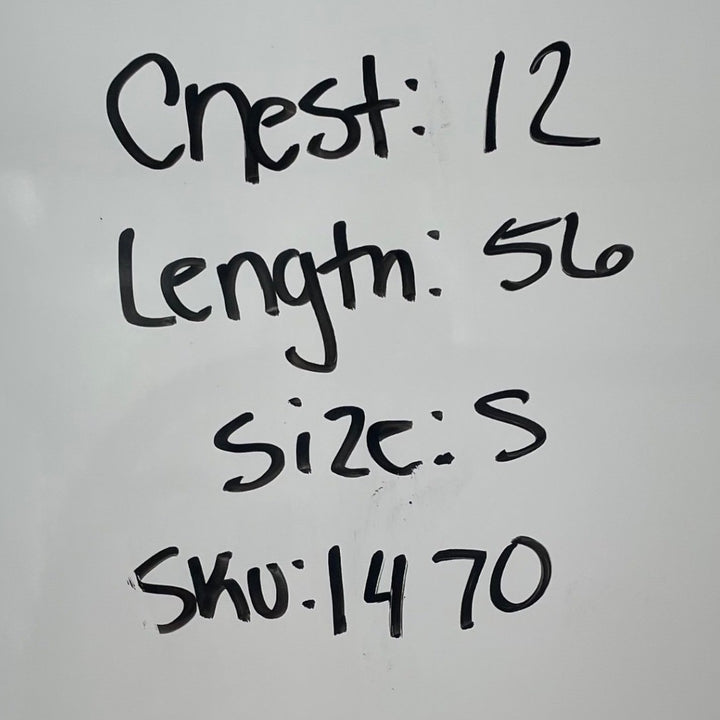 Chest: 12
Length: 56
Size: S
SKU: 1470